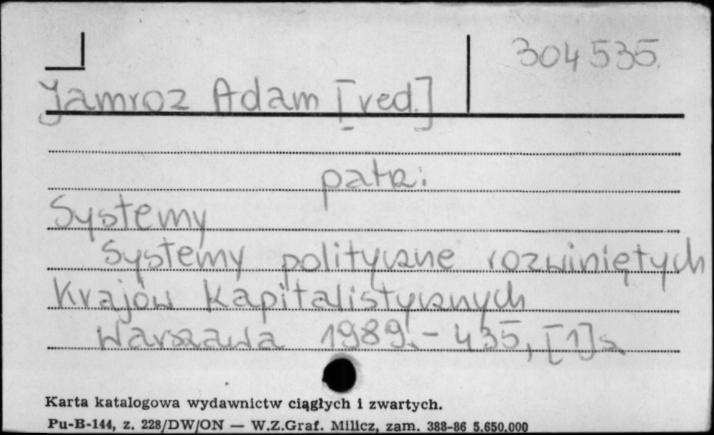 304535
Jamroz Adam [red.]
patrz:
Systemy
Systemy polityczne rozwiniętych
Krajów Kapitalistycznych
Warszawa 1989.- 435, [1] s.
Karta katalogowa wydawnictw ciągłych i zwartych.
Pu-B-144, z. 228/DW/ON — W.Z.Graf. Milicz, zam. 388-86 5.650.000